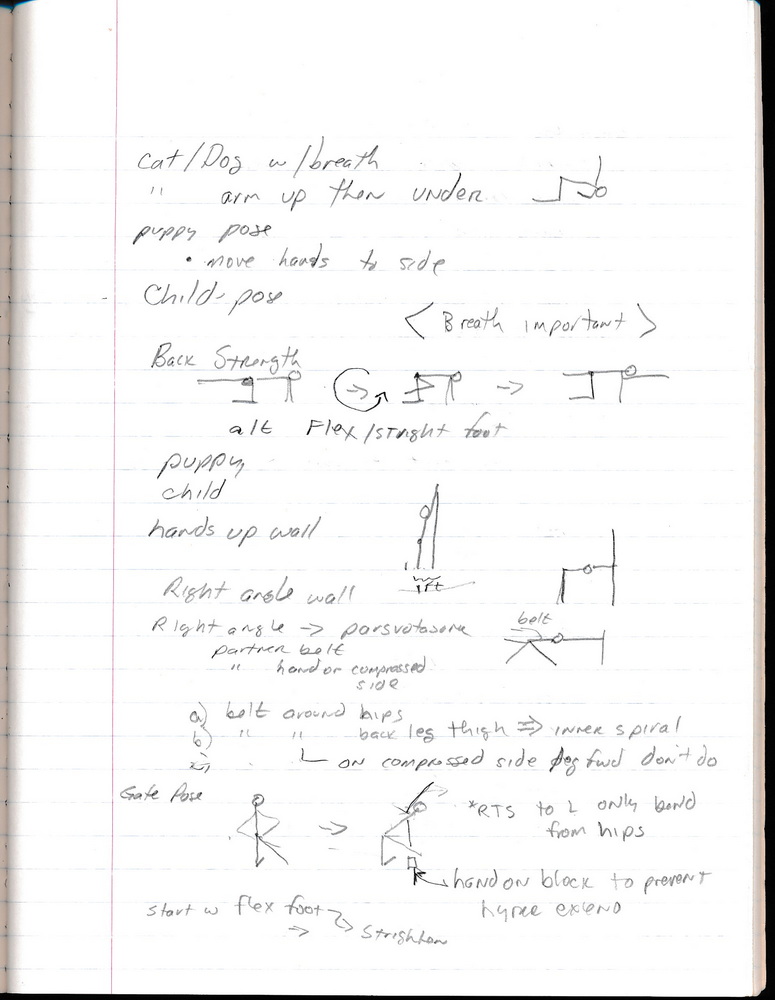 cat/Dog w/breath
" arm up then under
puppy pose
• move hands to side
Child-pose
< Breath important >
Back Strength
alt Flex/stright foot
puppy
child
hands up wall
1ft
Right angle wall
Right angle → parsvotasona
belt
partner belt
" hand on compressed
side
a) belt around hips
b) " " back leg thigh ⇒ inner spiral
on compressed side leg fwd don't do
Gate Pose
*RTS to L only bend
from hips
hand on block to prevent
hyree extend
start w flex foot
→ Strighten